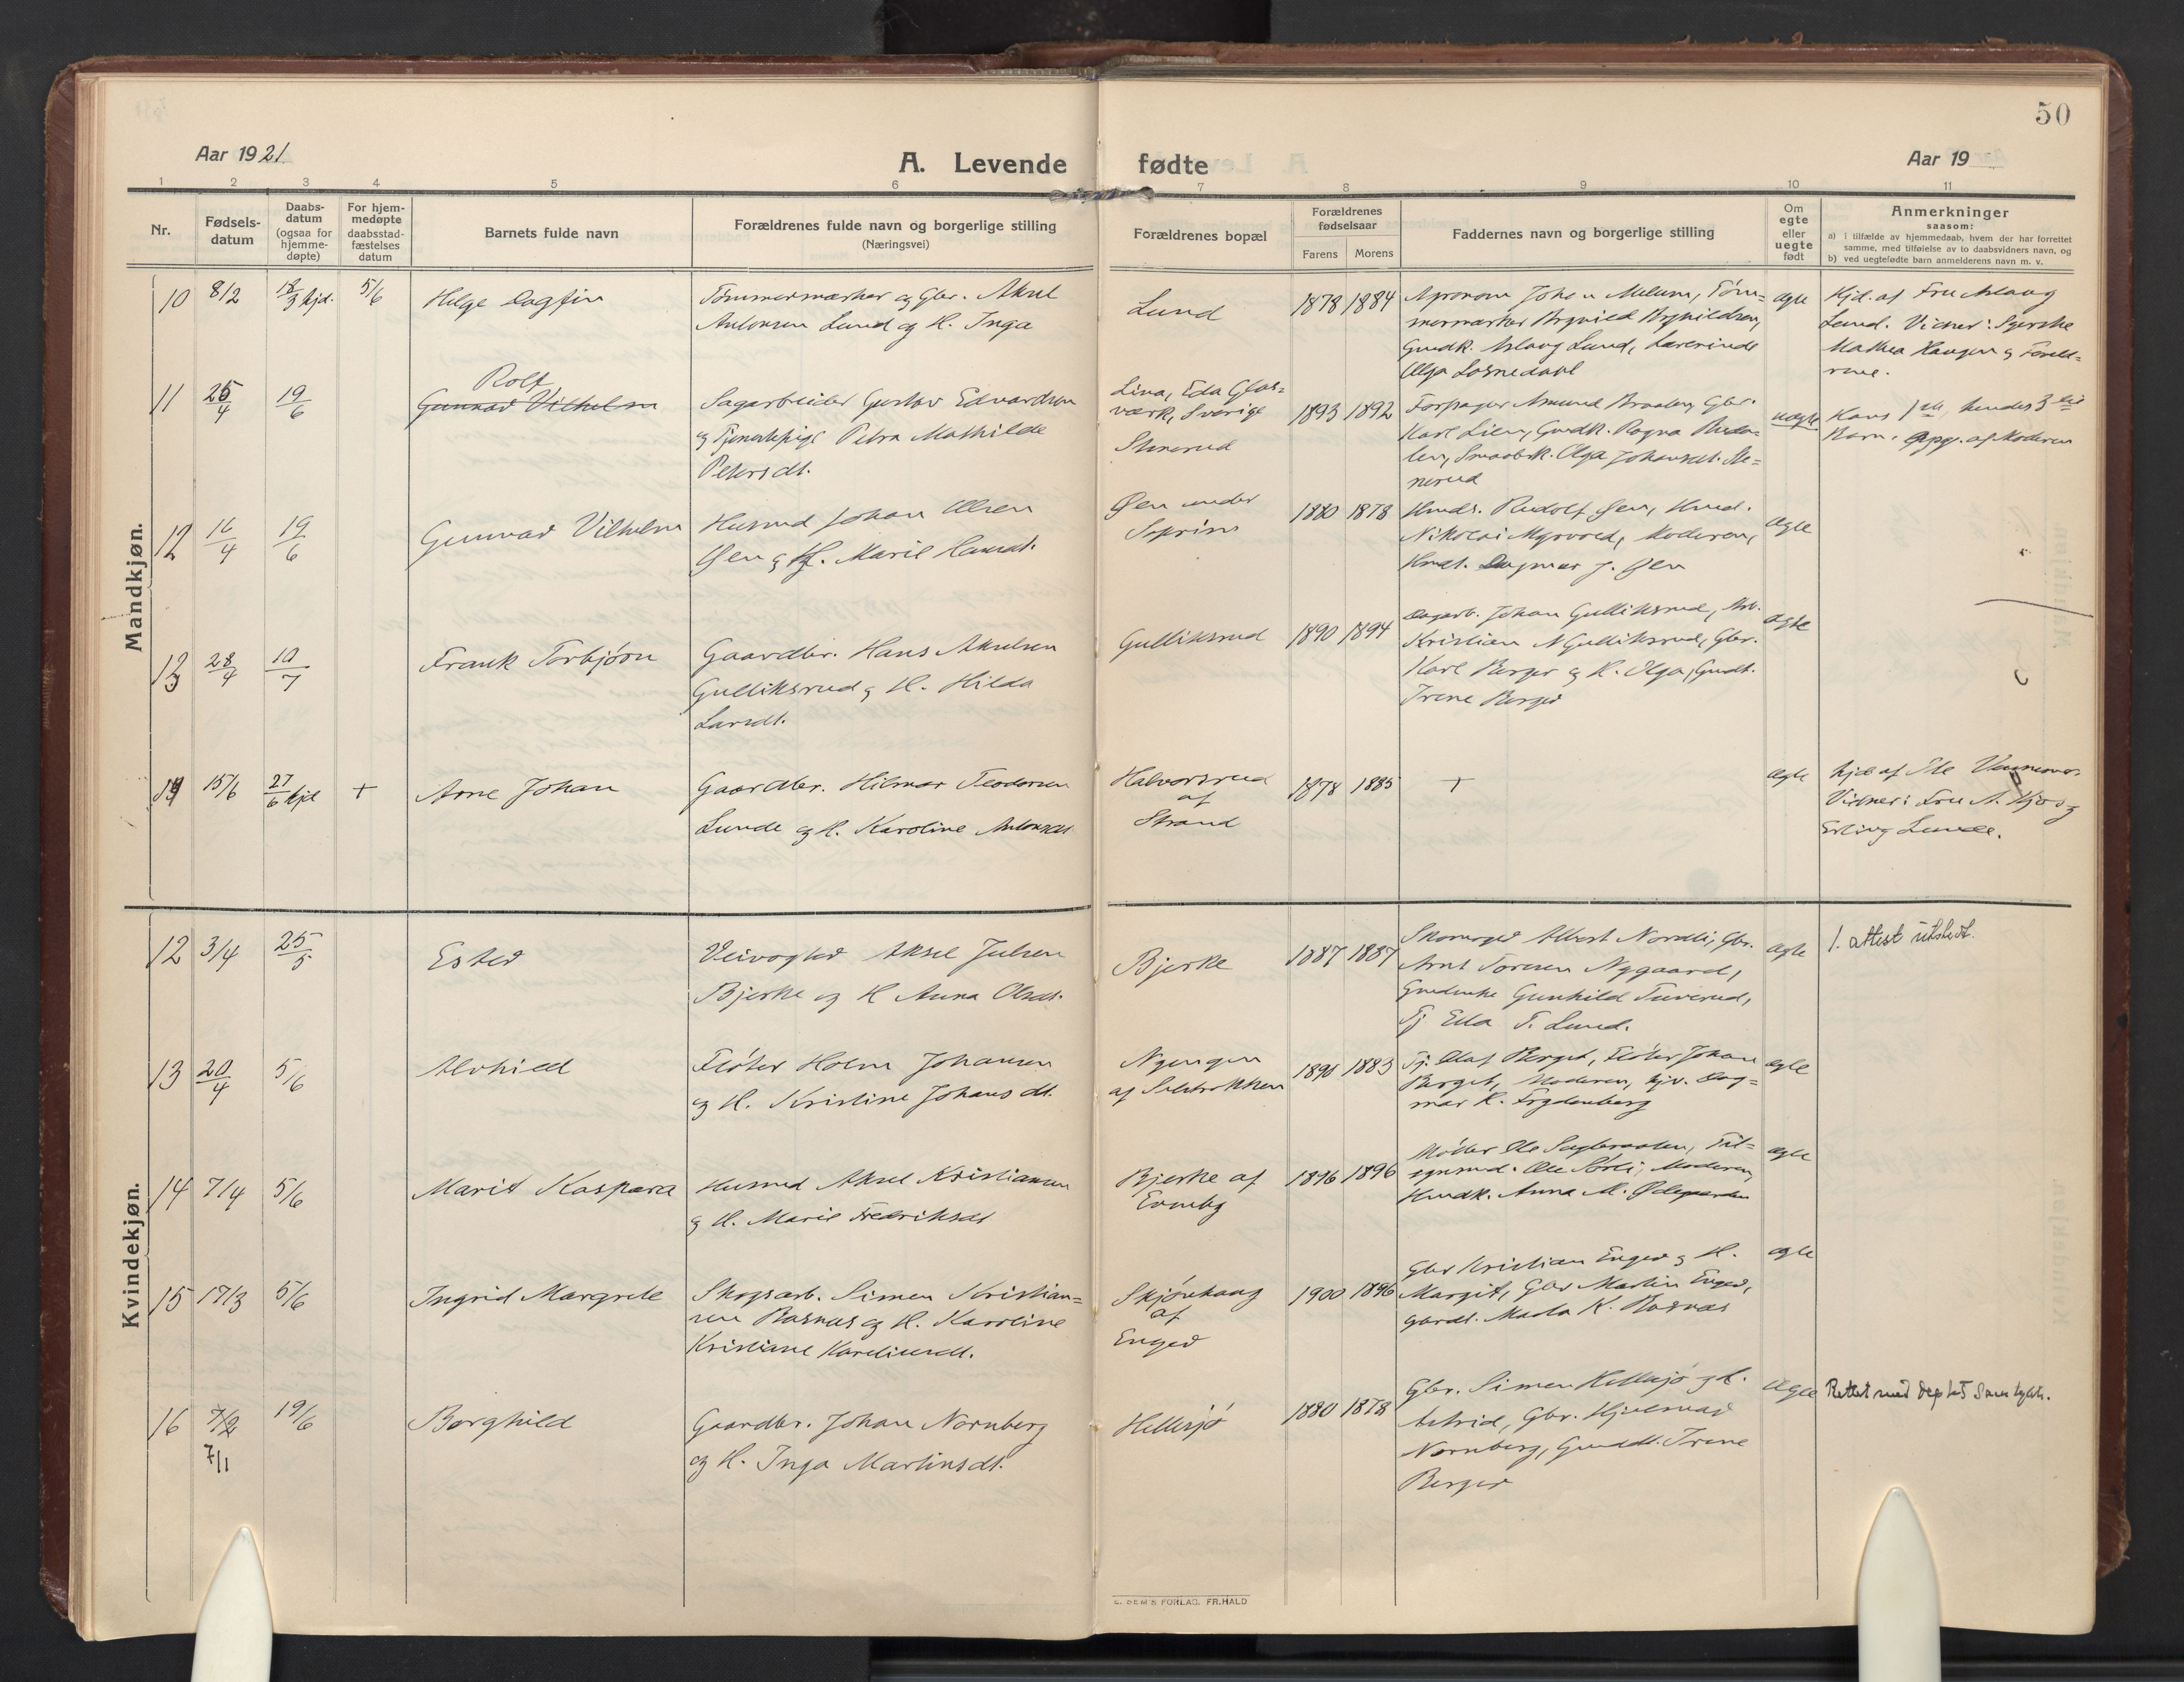 50
Aar 1921
A. Levende fødte
Aar 19
1 2 3 4 5 6 7 8 9 10 11
Nr.
Fødsels-
datum
Daabs-
datum
(ogsaa for
hjemme-
døpte)
For hjem-
medøpte
daabsstad-
fæstelses
datum
Barnets fulde navn
Forældrenes fulde navn og borgerlige stilling
(Næringsvei)
Forældrenes bopæl
Forældrenes
fødselsaar
Farens Morens
Faddernes navn og borgerlige stilling
Om
egte
eller
uegte
født
Anmerkninger
saasom:
a) i tilfælde av hjemmedaab, hvem der har forrettet
samme, med tilføielse av to daabsvidners navn, og
b) ved uegtefødte barn anmelderens navn m. v.
Mandkjøn.
10 8/2 18/3 hjd. 5/6 Helge Dagfin
Tømmermærker og Gbr. Aksel
Antonsen Lund og H. Inga
Lund
1878 1884
Agronom Johan Melum, Tøm=
mermærker Brynild Brynildsen,
Gmdk. Aslaug Lund, Lærerinde
Olga Losnedahl
ægte
Hjd. af Fru Aslaug
Lund. Vidner: Syerske
Mathea Haugen og Foreld=
rene.
11 25/4 19/6 Rolf
Gunnar Vilhelm
Sagarbeider Gustav Edvardsen
og Tjenestepige Petra Mathilde
Petersdt.
Lina, Eda Glas=
værk, Sverige
Stenerud
1893 1892
Forpagter Amund Braaten, Gbr.
Karl Lien, Gmdk. Ragna
Smaabk. Olga Johansdt. Ste=
nerud
uægte
Hans 1ste, hendes 3die
Barn. Opg. af Moderen
12 16/4 19/6 Gunnar Vilhelm
Husmd Johan Olsen
Øen og H. Marie Hansdt.
Øen under
Soprim
1880 1878
Hmds. Rudolf Øen, Hmd.
Nikolai Myrvold, Moderen,
Hmdt. Dagmar J. Øen
ægte
13 28/4 10/7 Frank Torbjørn
Gaardbr. Hans Akselsen
Gulliksrud og H. Hilda
Larsdt.
Gulliksrud
1890 1894
Dagarb. Johan Gulliksrud, Arb.
Kristian N Gulliksrud, Gbr.
Karl Berger og H. Olga, Gmdt.
Irene Berger
ægte
14 15/6 27/6 hjd + Arne Johan
Gaardbr. Hilmar Teodorsen
Lunde og H. Karoline Antonsdt
Halvorsrud
af
Strand
1878 1885
+
ægte
hjd af Ole
Vidner: Fru A. og
Erling Lunde.
Kvindekjøn.
12 3/4 25/5 Ester
Veivogter Aksel Julsen
Bjerke og H Anna Olsdt.
Bjerke
1887 1887
Skomager Albert Nordli, Gbr.
Arnt Toresen Nygaard,
Gmdenke Gunhild Tuverud,
Tj Ella T. Lund.
ægte
1. attest utstedt.
13 20/4 5/6 Alvhild
Fløter Holm Johansen
og H. Kristine Johansdt.
Nyengen
af
1890 1883
Tj. Olaf Berget, Fløter Johan
Berget, Moderen, Dag=
mar K. Frydenberg
ægte
14 7/4 5/6 Marit Kaspara
Husmd Aksel Kristiansen
og H. Marie Fredriksdt
Bjerke af
1896 1896
Møller Ole Sagbraaten, Til=
synsmd. Ole Sørli, Moderen,
Hmdk. Anna M. Ødegaarden
ægte
15 17/3 5/6 Ingrid Margrete
Skogsarb. Simen Kristian=
sen Basnæs og H. Karoline
Kristiane Kareliusdt.
Skjønhaug
af
Enger
1900 1896
Gbr Kristian Enger og H.
Margit, Gbr Martin Enger,
Gardt. Marta K. Basnæs
ægte
16 7/2 19/6 Borghild
7/1
Gaardbr. Johan Nornberg
og H. Inga Martinsdt.
Hellesjø
1880 1878
Gbr. Simen Hellesjø og H.
Astrid, Gbr. Hjalmar
Nornberg, Gmdt. Irene
Berger
ægte
Rettet med dep.tets samtykke.
E. SEM'S FORLAG. FR.HALD